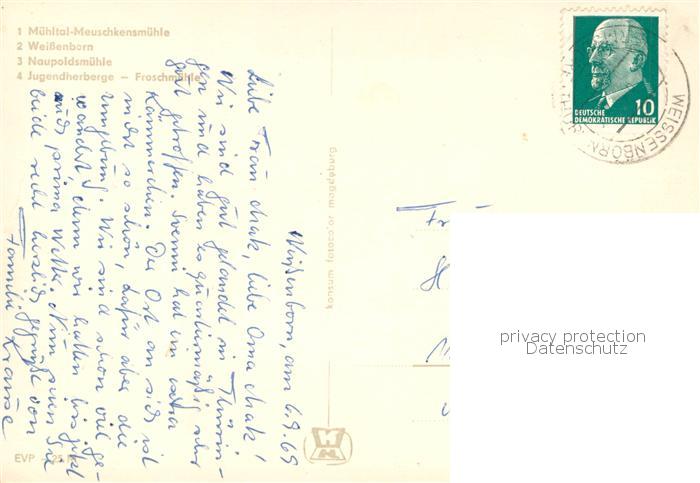 1 Mühltal-Meuschkensmühle
2 Weißenborn
3 Naupoldsmühle
4 Jugendherberge – Froschmühle
Weißenborn, am 6.9.69
Liebe Frau Mak, liebe Oma Mak!
Wir sind gut gelandet in Thürin-
gen und haben es quartiermäßig sehr
gut getroffen. Svenni hat ein extra
Kämmerchen. Der Ort an sich ist
nicht so schön, dafür aber die
Umgebung. Wir sind schon viel ge-
wandert, denn wir hatten bis jetzt
auch prima Wetter. Nun seien Sie
beide recht herzlich gegrüßt von
Familie Krause
EVP
konsum fotocolor magdeburg
DEUTSCHE
DEMOKRATISCHE REPUBLIK
10
WEISSENBORN
privacy protection
Datenschutz